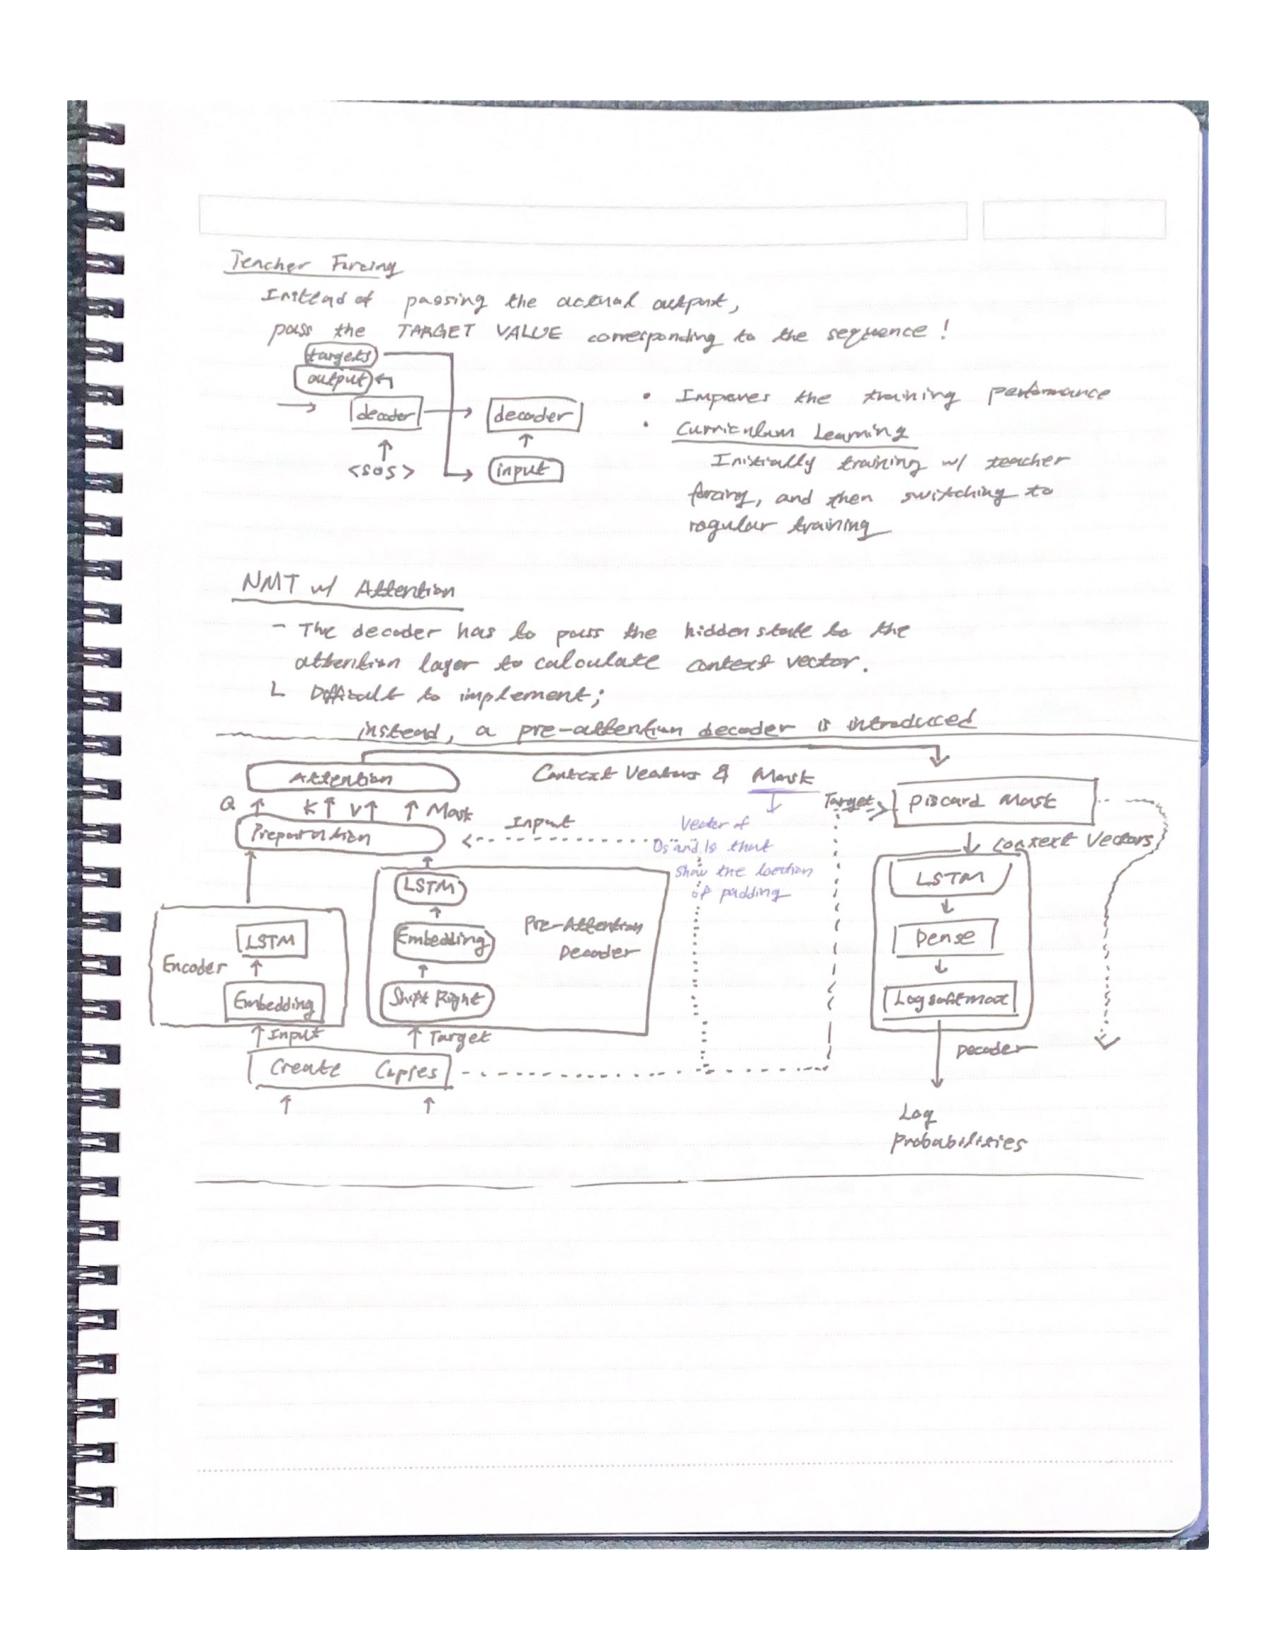 Teacher Forcing
Instead of passing the actual output,
pass the TARGET VALUE corresponding to the sequence!
targets
output
decoder
decoder
<sos>
input
• Improves the training performance
• Curriculum Learning
Initially training w/ teacher
forcing, and then switching to
regular training
NMT w/ Attention
- The decoder has to pass the hidden state to the
attention layer to calculate context vector.
└ Difficult to implement;
instead, a pre-attention decoder is introduced
Attention
Context Vectors & Mask
Target
Discard Mask
Q K V Mask
Preparation
Input
Vector of
0s and 1s that
show the location
of padding
Context Vectors
LSTM
LSTM
Embedding
Pre-Attention
Decoder
Dense
Encoder
LSTM
Embedding
Shift Right
Logsoftmax
Input
Target
Decoder
Create Copies
Log
Probabilities